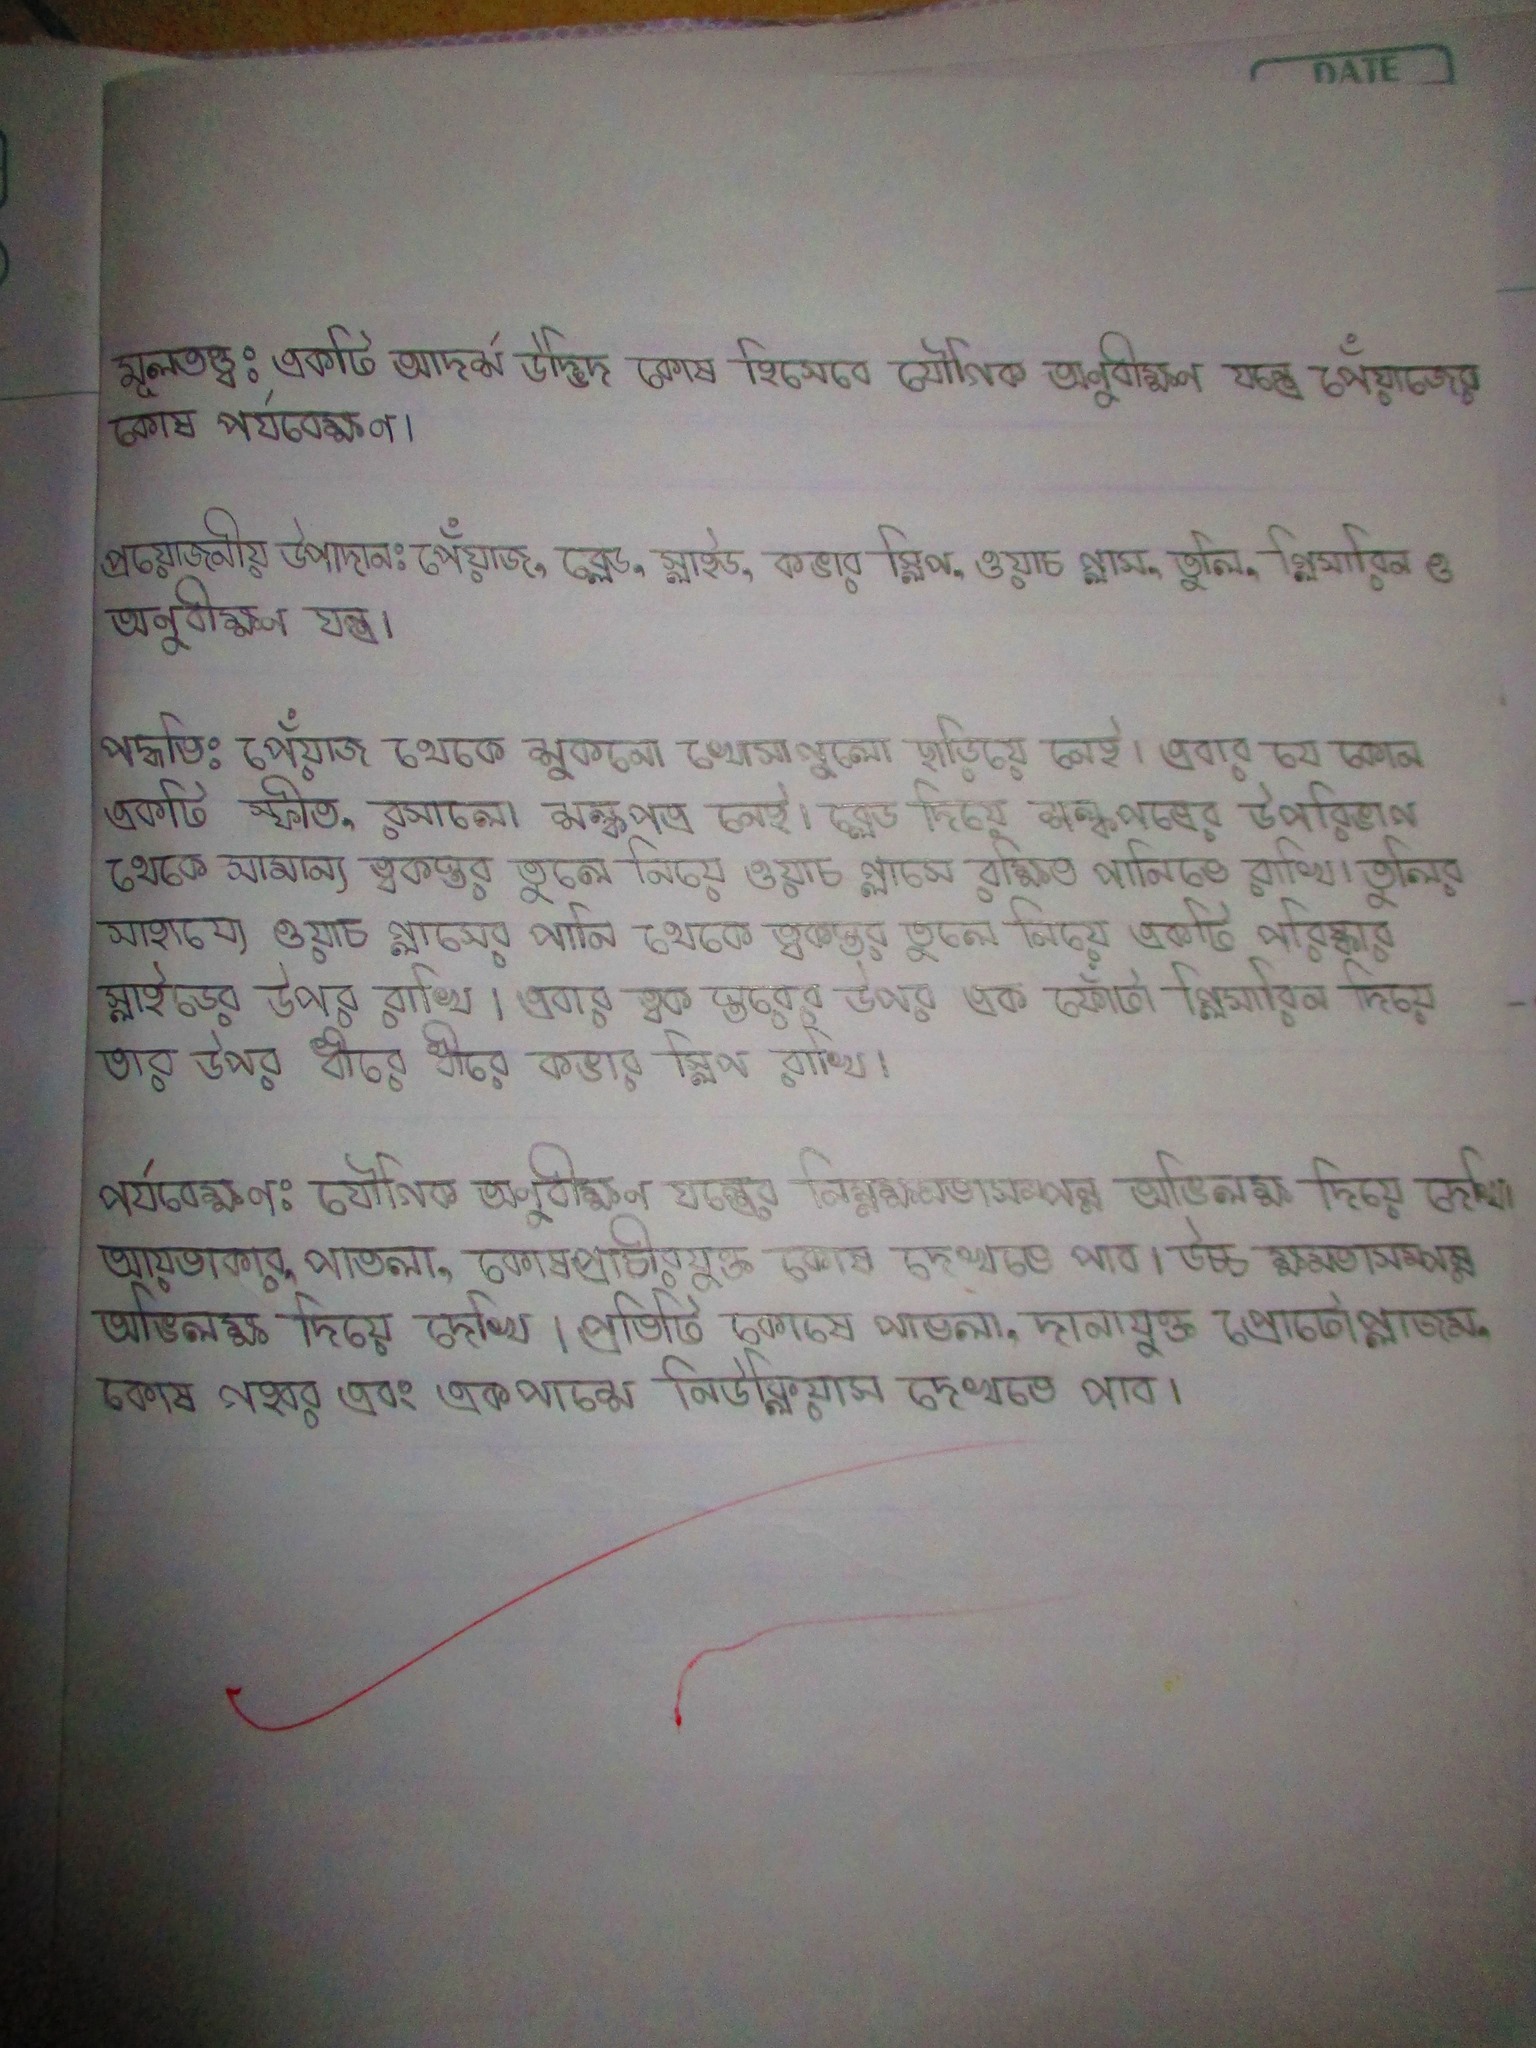 DATE
মূলতত্ত্ব: একটি আদর্শ উদ্ভিদ কোষ হিসেবে যৌগিক অনুবীক্ষণ যন্ত্রে পেঁয়াজের
কোষ পর্যবেক্ষণ।
প্রয়োজনীয় উপাদান: পেঁয়াজ, ব্লেড, স্লাইড, কভার স্লিপ, ওয়াচ গ্লাস, তুলি, গ্লিসারিন ও
অনুবীক্ষণ যন্ত্র।
পদ্ধতি: পেঁয়াজ থেকে শুকনো খোসাগুলো ছাড়িয়ে নেই। এবার যে কোন
একটি স্ফীত, রসালো শল্কপত্র নেই। ব্লেড দিয়ে শল্কপত্রের উপরিভাগ
থেকে সামান্য ত্বকস্তর তুলে নিয়ে ওয়াচ গ্লাসে রক্ষিত পানিতে রাখি। তুলির
সাহায্যে ওয়াচ গ্লাসের পানি থেকে ত্বকস্তর তুলে নিয়ে একটি পরিষ্কার
স্লাইডের উপর রাখি। এবার ত্বক স্তরের উপর এক ফোঁটা গ্লিসারিন দিয়ে
তার উপর ধীরে ধীরে কভার স্লিপ রাখি।
পর্যবেক্ষণ: যৌগিক অনুবীক্ষণ যন্ত্রের নিম্নক্ষমতাসম্পন্ন অভিলক্ষ দিয়ে দেখি।
আয়তাকার, পাতলা, কোষপ্রাচীরযুক্ত কোষ দেখতে পাব। উচ্চ ক্ষমতাসম্পন্ন
অভিলক্ষ দিয়ে দেখি। প্রতিটি কোষে পাতলা, দানাযুক্ত প্রোটোপ্লাজম,
কোষ গহ্বর এবং একপাশে নিউক্লিয়াস দেখতে পাব।